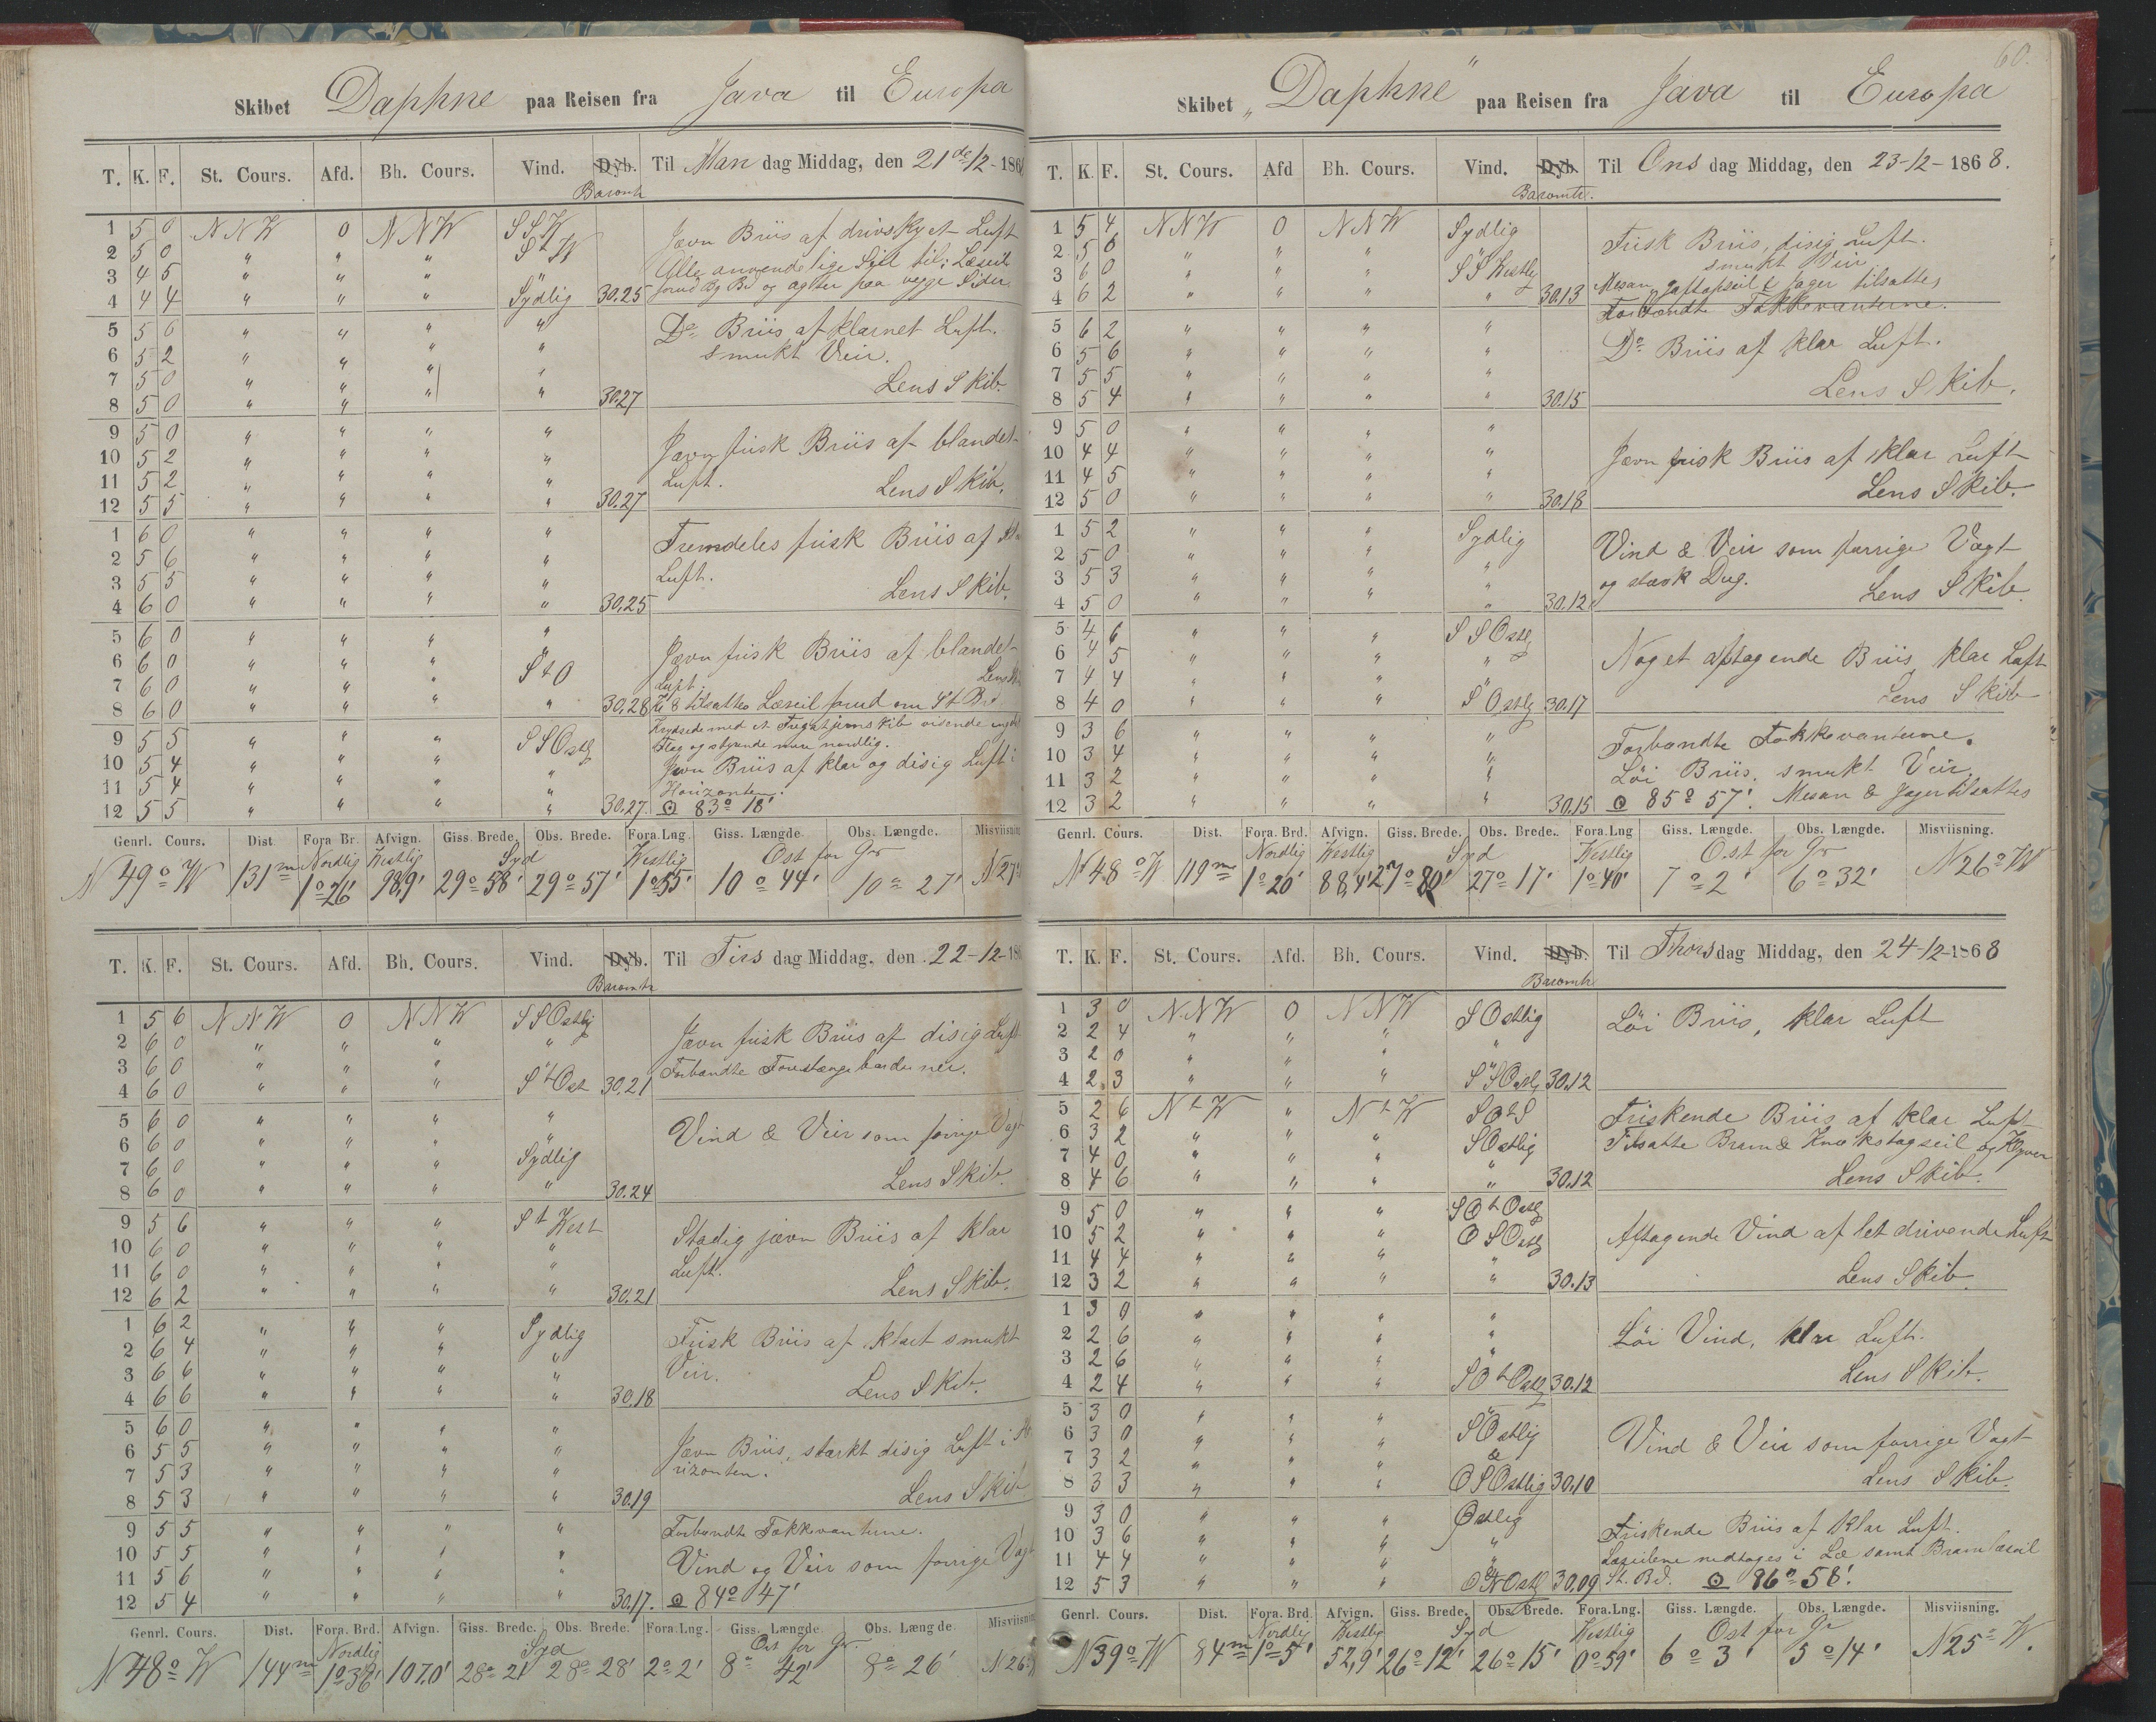 Skibet Daphne paa Reisen fra Java til Europa
T. K. F. St. Cours. Afd. Bh. Cours. Vind. Dyb. Til Man dag Middag, den 21de/12-186
Baromtr
1 5 0 NNW 0 NNW SSW
2 5 0 " " " StW
3 4 5 " " " "
4 4 4 " " " Sydlig 30.25
Jævn Briis af drivskyet Luft
Alle anvendelige Seil til; Læseil
forud Bg Bd og agter paa begge Sider.
5 5 6 " " " "
6 5 2 " " " "
7 5 0 " " " "
8 5 0 " " " " 30.27
Do Briis af klarnet Luft.
smukt Veir.
Lens Skib.
9 5 0 " " " "
10 5 2 " " " "
11 5 2 " " " "
12 5 5 " " " " 30.27
Jævn frisk Briis af blandet
Luft. Lens Skib.
1 6 0 " " " "
2 5 6 " " " "
3 5 5 " " " "
4 6 0 " " " " 30.25
Fremdeles frisk Briis af
Luft. Lens Skib.
5 6 0 " " " "
6 6 0 " " " StO
7 6 0 " " "
8 6 0 " " " " 30.28
Jævn frisk Briis af blandet
Luft. Lens
Kl 8 tilsattes Læseil forud om St Bd
9 5 5 " " " SSOstlg
10 5 4 " " " "
11 5 4 " " " "
12 5 5 " " " " 30.27.
Krydsede med et Fregatjernskib visende
Flag og styrende mere nordlig.
Jævn Briis af klar og disig Luft i
Horizonten.
⊙ 83° 18'
Genrl. Cours. Dist. Fora Br. Afvign. Giss. Brede. Obs. Brede. Fora.Lng. Giss. Længde. Obs. Længde. Misviisning
Nordlig Westlig Syd Westlig Ost for Gr
N 49° W 131m 1°26' 98,9' 29° 58' 29° 57' 1°55' 10° 44' 10° 27' N 27°
T. K. F. St. Cours. Afd. Bh. Cours. Vind. Dyb. Til Tirs dag Middag, den 22-12-186
Baromtr
1 5 6 NNW 0 NNW SSOstlig
2 6 0 " " " "
3 6 0 " " "
4 6 0 " " " StOst 30.21
Jævn frisk Briis af disig Luft
Forbandte Forestænge barduner.
5 6 0 " " " "
6 6 0 " " " "
7 6 0 " " " Sydlig
8 6 0 " " " " 30.24
Vind & Veir som forrige Vagt
Lens Skib.
9 5 6 " " " St West
10 6 0 " " " "
11 6 0 " " " "
12 6 2 " " " " 30.21
Stadig jævn Briis af klar
Luft. Lens Skib.
1 6 2 " " " Sydlig
2 6 4 " " " "
3 6 6 " " " "
4 6 6 " " " " 30.18
Frisk Briis af klart smukt
Veir. Lens Skib.
5 6 0 " " " "
6 5 5 " " " "
7 5 3 " " " "
8 5 3 " " " " 30.19
Jævn Briis, stærkt disig Luft i Ho
rizonten.
Lens Skib
9 5 5 " " " "
10 5 5 " " " "
11 5 6 " " " "
12 5 4 " " " " 30.17.
Forbandte Fokkevanterne.
Vind og Veir som forrige Vagt
⊙ 84° 47'
Genrl. Cours. Dist. Fora. Brd. Afvign. Giss. Brede. Obs. Brede. Fora.Lng. Giss. Længde. Obs. Længde. Misviisning
Nordlig Syd Ost for Gr.
N 48° W 144m 1°38' 107,0' 28° 21' 28° 28' 2° 2' 8° 42' 8° 26' N 26°
60.
Skibet "Daphne" paa Reisen fra Java til Europa
T. K. F. St. Cours. Afd Bh. Cours. Vind. Dyb. Til Ons dag Middag, den 23-12-1868.
Baromtr.
1 5 4 NNW 0 NNW Sydlig
2 5 6 " " " "
3 6 0 " " " SSWestlg
4 6 2 " " " " 30.13
Frisk Briis, disig Luft.
smukt Veir
Mesan, gaftopseil & Jager tilsattes
Forbandte Fokkevanterne.
5 6 2 " " " "
6 5 6 " " " "
7 5 5 " " " "
8 5 4 " " " " 30.15
Do Briis af klar Luft.
Lens Skib.
9 5 0 " " " "
10 4 4 " " " "
11 4 5 " " " "
12 5 0 " " " " 30.18
Jævn frisk Briis af klar Luft
Lens Skib.
1 5 2 " " " Sydlig
2 5 0 " " "
3 5 3 " " " "
4 5 0 " " " " 30.12
Vind & Veir som forrige Vagt
og stærk Dug. Lens Skib.
5 4 6 " " " SSOstlg
6 4 5 " " " "
7 4 4 " " "
8 4 0 " " " SOstlg 30.17
Noget aftagende Briis, klar Luft
Lens Skib
9 3 6 " " " "
10 3 4 " " " "
11 3 2 " " " "
12 3 2 " " " " 30.15
Forbandte Fokkevanterne.
Löi Briis, smukt Veir.
⊙ 85° 57'. Mesan & Jager tilsattes
Genrl. Cours. Dist. Fora. Brd. Afvign. Giss. Brede. Obs. Brede. Fora.Lng Giss. Længde. Obs. Længde. Misviisning.
Nordlig Westlig Syd Westlig Ost for Gr
N 48° W 119m 1°20' 88,4' 27° 20' 27° 17' 1°40' 7° 2' 6° 32' N 26° W
T. K. F. St. Cours. Afd. Bh. Cours. Vind. Dyb. Til Thors dag Middag, den 24-12-1868
Baromtr
1 3 0 NNW 0 NNW SOstlig
2 2 4 " " "
3 2 0 " " " "
4 2 3 " " " SSOstlg 30.12
Löi Briis, klar Luft
5 2 6 NtW " NtW SOtS
6 3 2 " " " SOstlig
7 4 0 " " " "
8 4 6 " " " " 30.12
Friskende Briis af klar Luft
Tilsatte Bram & Krydsstagseil og Klyver
Lens Skib.
9 5 0 " " " SOtOstlg
10 5 2 " " " OSOstlg
11 4 4 " " " "
12 3 2 " " " " 30.13
Aftagende Vind af let drivende Luft
Lens Skib.
1 3 0 " " " "
2 2 6 " " " "
3 2 6 " " " "
4 2 4 " " " SOtOstlg 30.12
Löi Vind, klar Luft.
Lens Skib.
5 3 0 " " "
6 3 0 " " " SOstlig
7 3 2 " " " &
8 3 3 " " " OSOstlig 30.10
Vind & Veir som forrige Vagt
Lens Skib.
9 3 0 " " " Ostlig
10 3 6 " " " "
11 4 4 " " " "
12 5 3 " " " 30.09
Friskende Briis af klar Luft.
Læseilene nedtages i Læ samt Bramlæseil
St. Bd. ⊙ 86° 58'.
Genrl. Cours. Dist. Fora. Brd. Afvign. Giss. Brede. Obs. Brede. Fora.Lng. Giss. Længde. Obs. Længde. Misviisning.
Nordlig Westlig Syd Westlig Ost for Gr
N 39° W 84m 1° 5' 52,9' 26° 12' 26° 15' 0° 59' 6° 3' 5° 14' N 25° W.